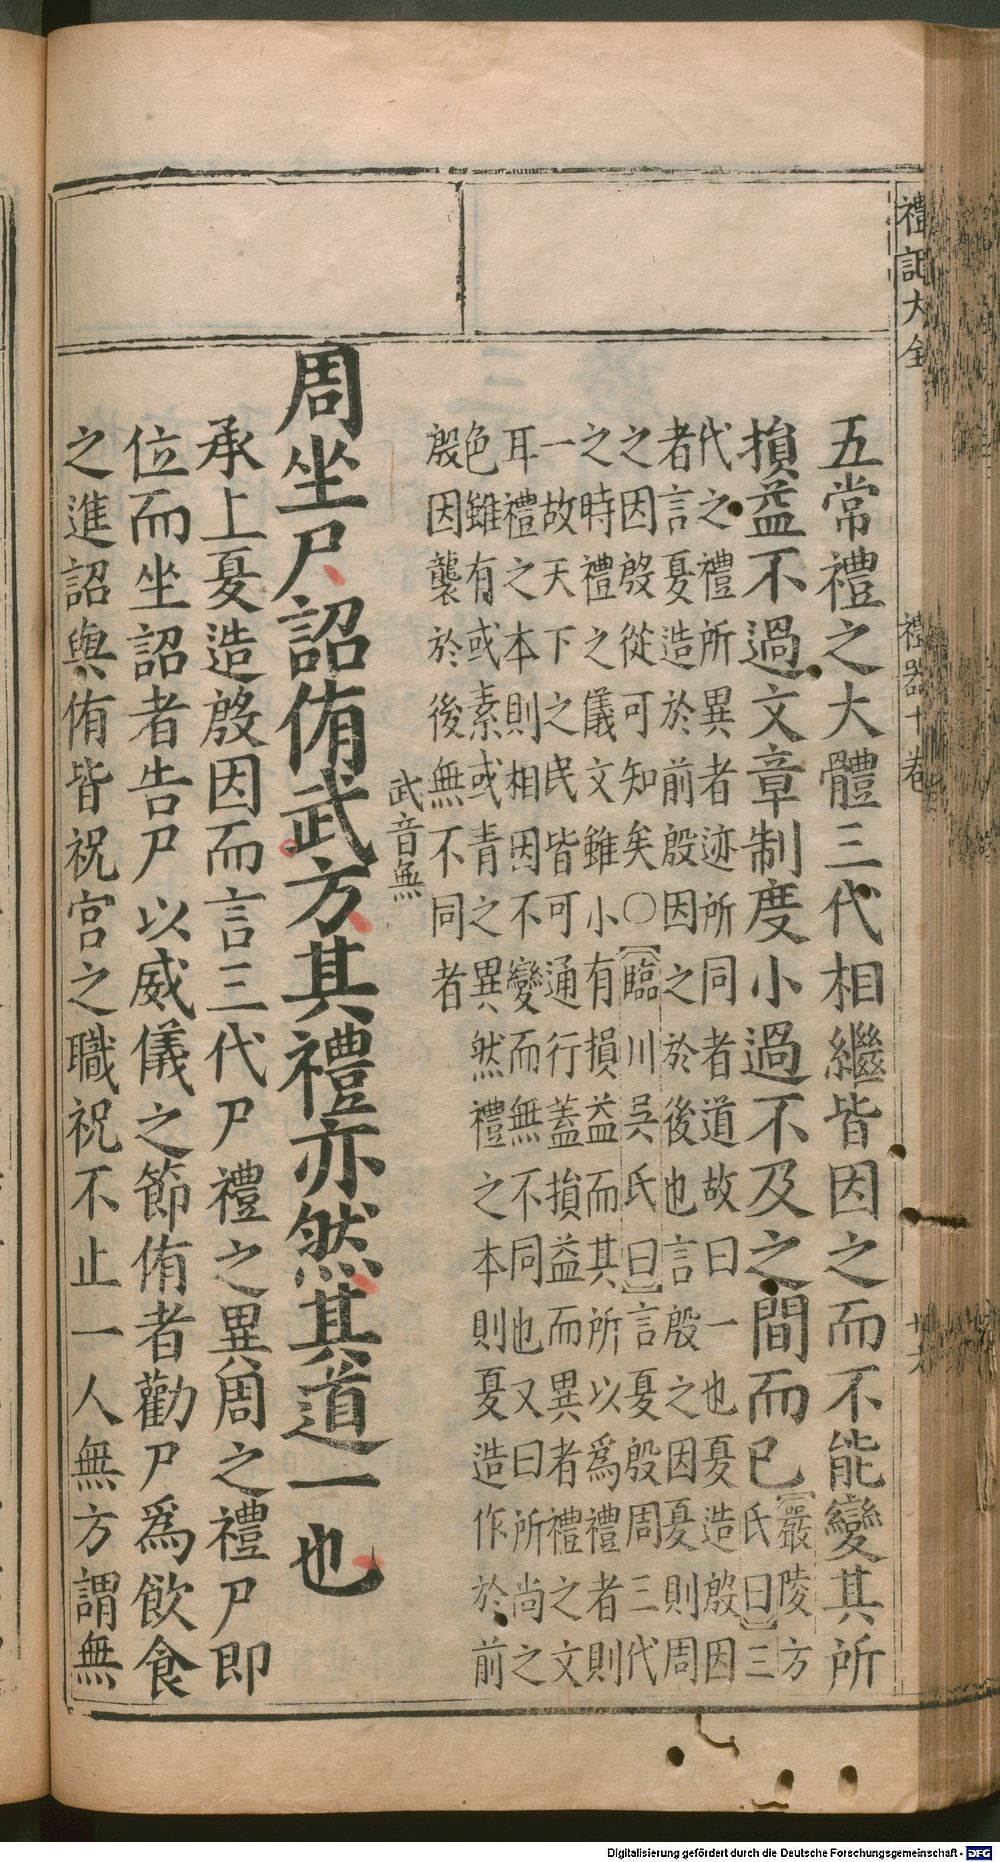 禮記大全
禮器十卷
五常禮之大體三代相繼皆因之而不能變其所
損益不過文章制度小過不及之間而已
嚴陵方
氏曰三
代之禮所異者迹所同者道故曰一也夏造殷因
者言夏造於前殷因之於後也言殷之因夏則周
之因殷從可知矣○臨川吳氏曰言夏殷周三代
之時禮之儀文雖小有損益而其所以爲禮者則
一故天下之民皆可通行蓋損益而異者禮之文
耳禮之本則相因不變而無不同也又曰所尚之
色雖有或素或青之異然禮之本則夏造作於前
殷因襲於後無不同者
周坐尸詔侑武方其禮亦然其道一也
武音無
承上夏造殷因而言三代尸禮之異周之禮尸即
位而坐詔者告尸以威儀之節侑者勸尸爲飲食
之進詔與侑皆祝官之職祝不止一人無方謂無
Digitalisierung gefördert durch die Deutsche Forschungsgemeinschaft - DFG